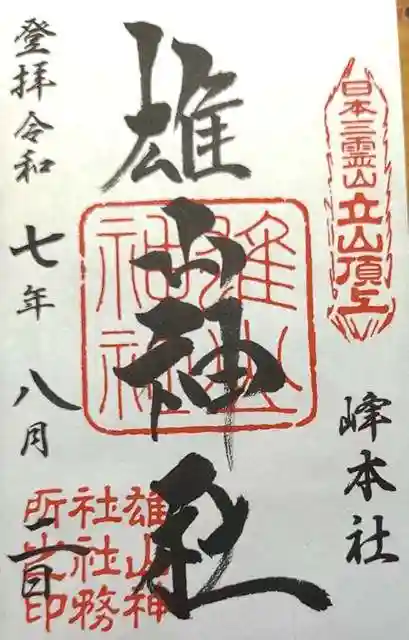 日本三霊山立山頂上
峰本社
雄山神社
雄山神社
登拝令和七年八月二日
雄山神社社務所之印